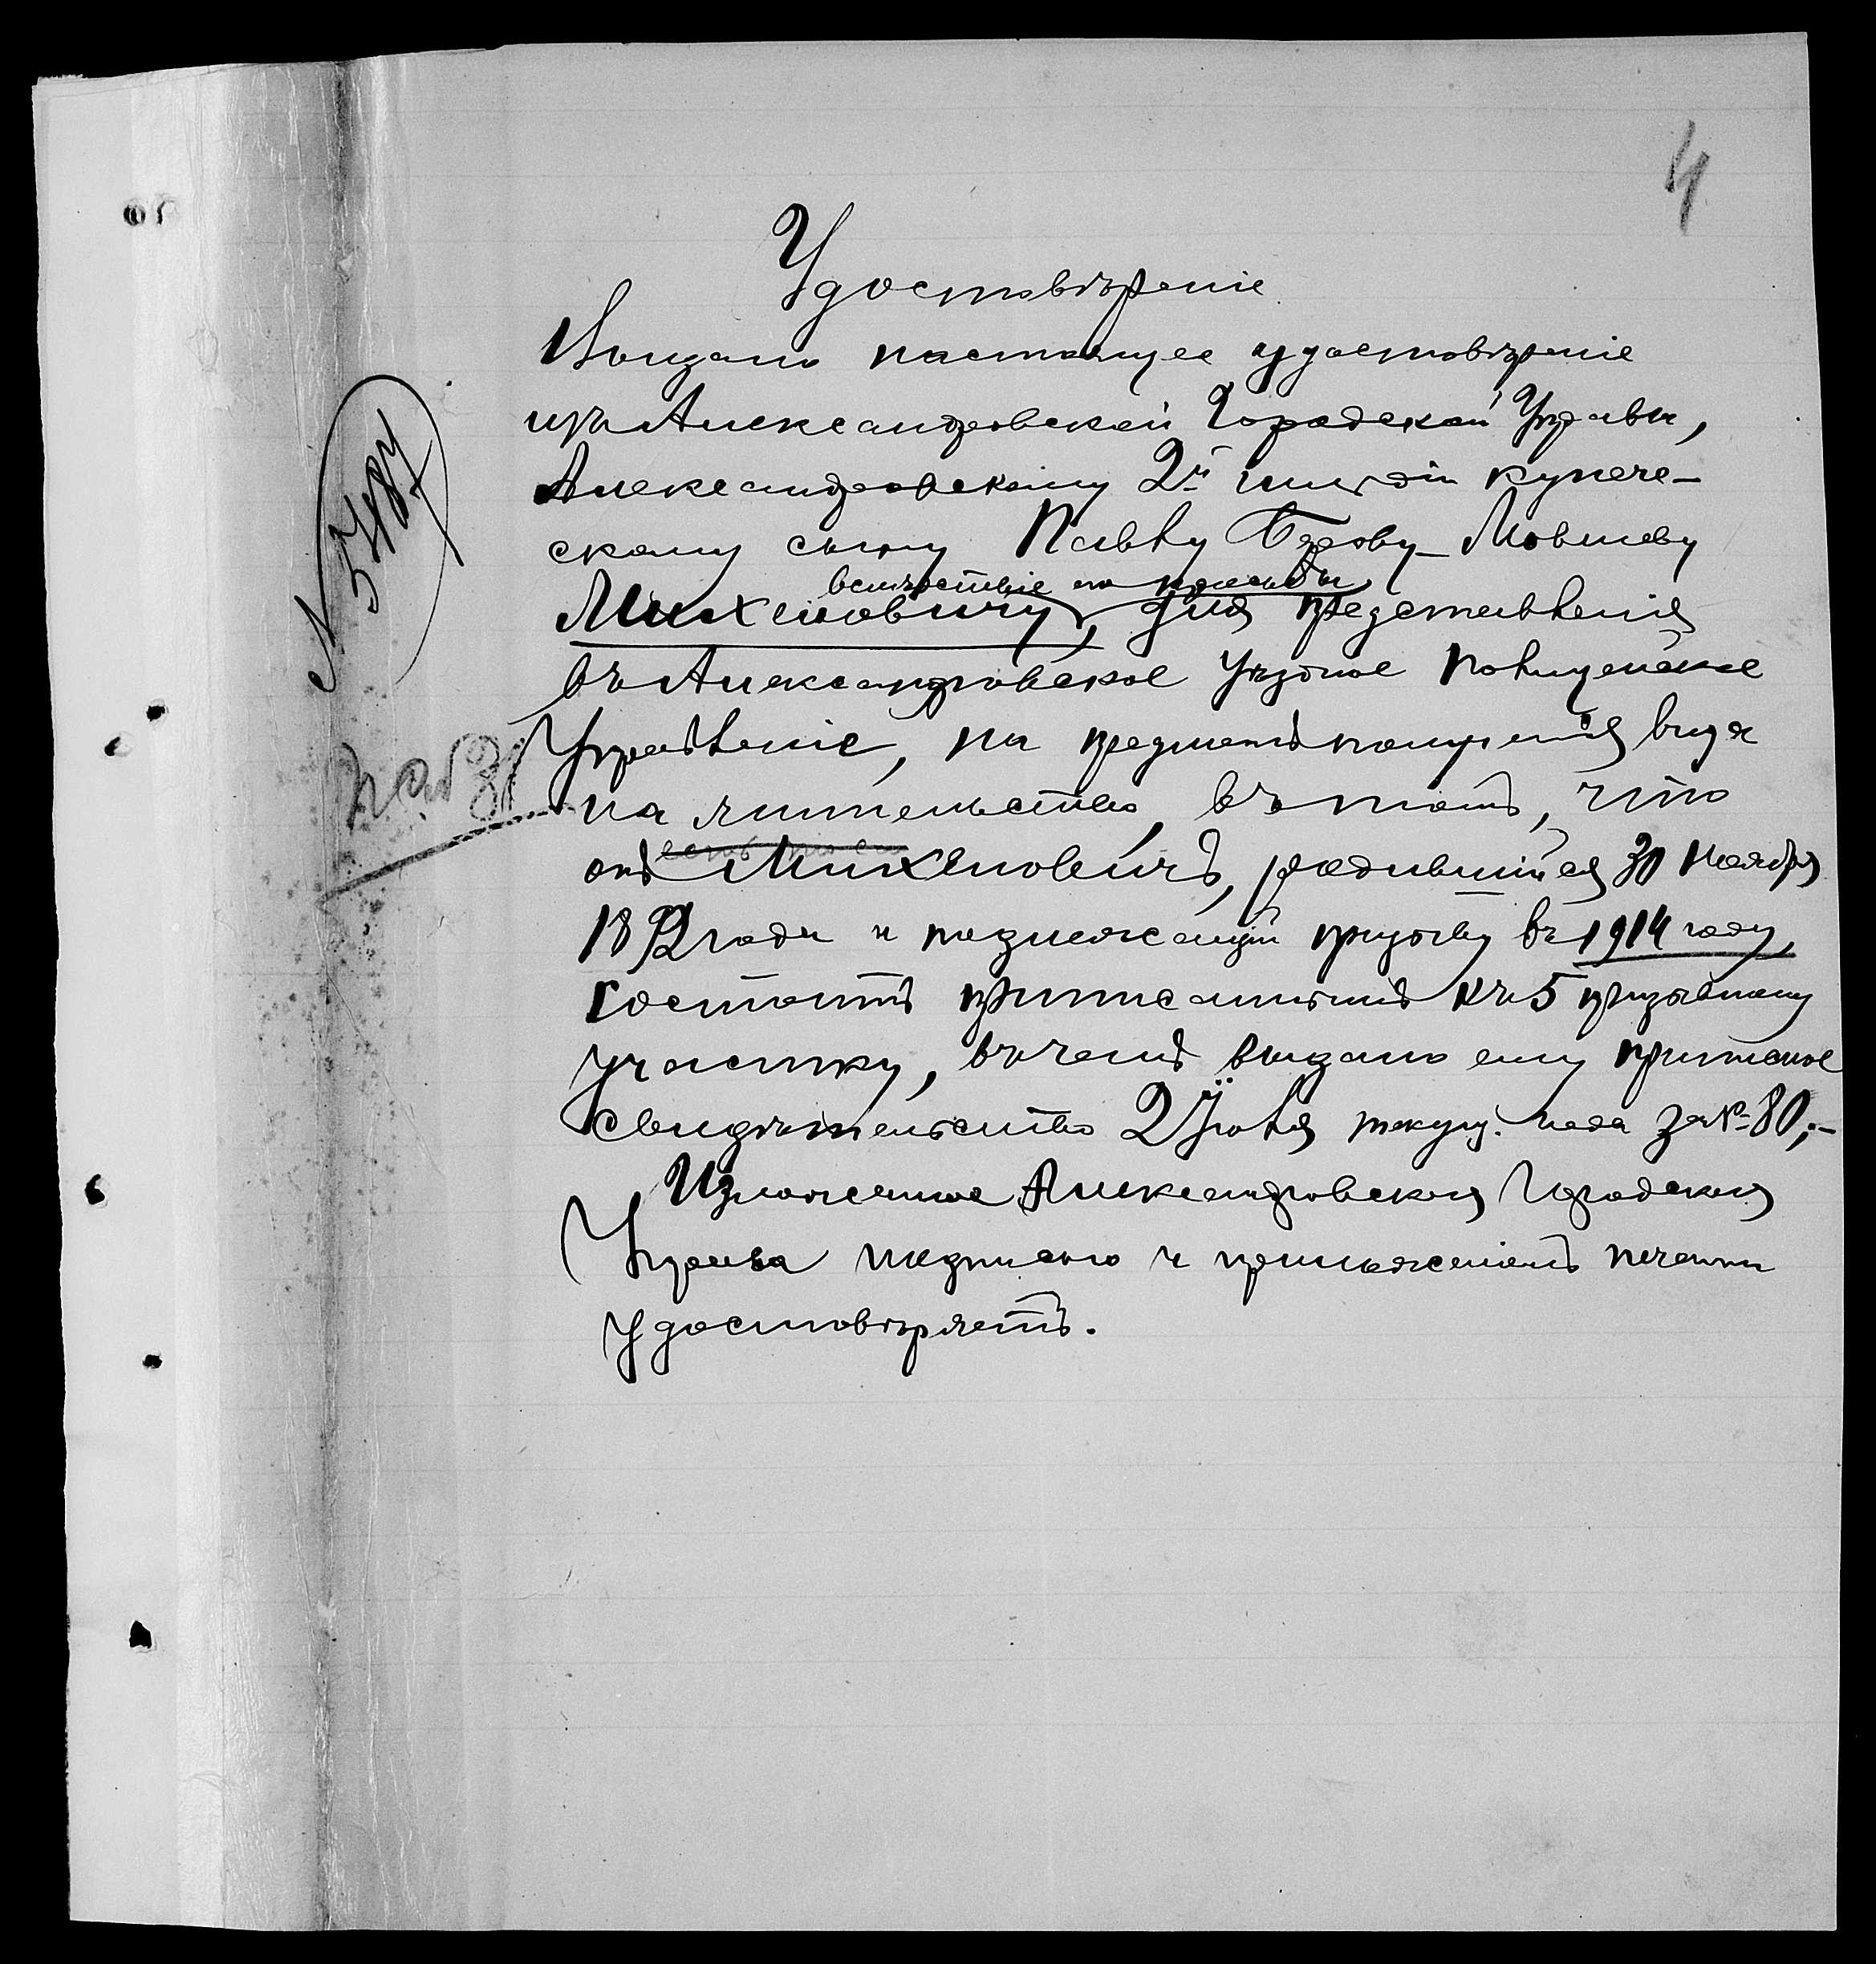 4
Удостовѣреніе
Выдано настоящее удостовѣреніе
изъ Александровской Городской Управы,
Александровскому 2й гильдіи купече-
скому сыну Павлу Берову-Мовшеву
вслѣдствіе его просьбы
Михеловичу, для представленія
въ Александровское Уѣздное Полицейское
Управленіе, на предметъ полученія вида
на жительство, въ томъ, что
онъ Михеловичъ, родившійся 30 Ноября
1892 года и подлежащій призыву въ 1914 году,
состоитъ приписаннымъ къ 5 призывному
участку, въ чемъ выдано ему приписное
свидѣтельство 2 Іюля текущ. года за № 80,-
Изложенное Александровская Городская
Управа подписью и приложеніемъ печати
удостовѣряетъ.
N 5487